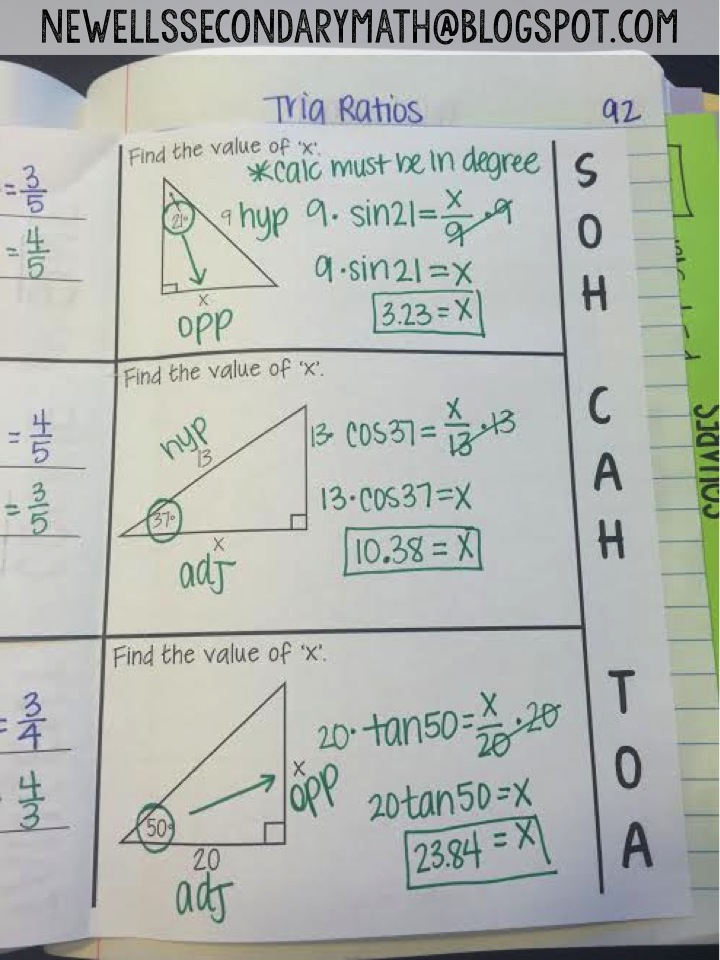 NEWELLSSECONDARYMATH@BLOGSPOT.COM
Trig Ratios 92
= 3/5
= 4/5
Find the value of 'x'.
*calc must be in degree
21°
9 hyp
x
opp
9· sin21 = x/9 ·9
9·sin21 = x
3.23 = x
S
O
H
= 4/5
= 3/5
Find the value of 'x'.
hyp
13
37°
x
adj
13· cos37 = x/13 ·13
13·cos37 = x
10.38 = x
C
A
H
= 3/4
4/3
Find the value of 'x'.
50°
x
opp
20
adj
20· tan50 = x/20 ·20
20tan50 = x
23.84 = x
T
O
A
SQUARES